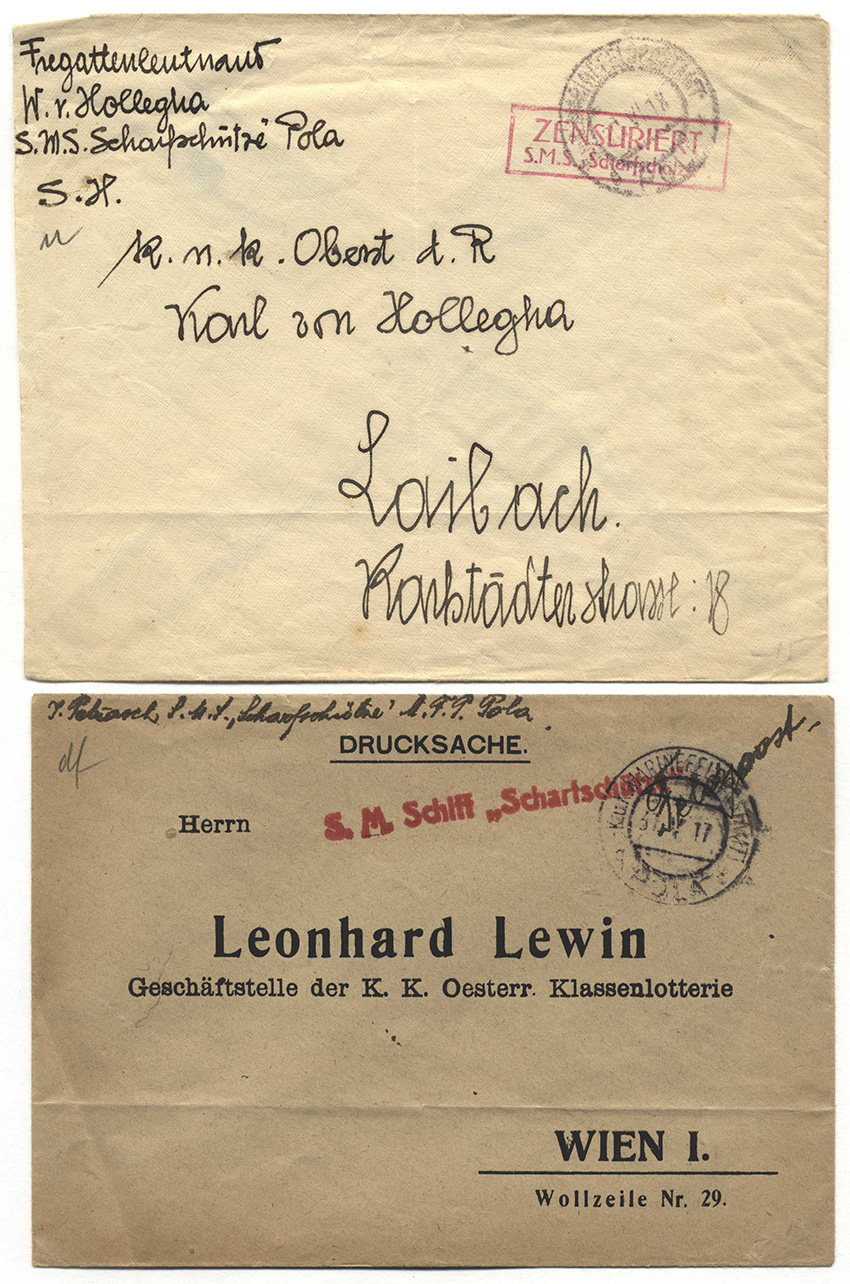 Fregattenleutnant
W. v. Hollegha
S.M.S. Scharfschütze Pola
S. H.
k. u. k. Oberst d. R
Karl von Hollegha
Laibach.
Karlstädterstrasse: 18
ZENSURIERT
S.M.S. Scharfschütze
POLA
S.M.S. „Scharfschütze" Pola
DRUCKSACHE.
S. M. Schiff „Scharfschütze"
Herrn
17
POLA
Leonhard Lewin
Geschäftstelle der K. K. Oesterr. Klassenlotterie
WIEN I.
Wollzeile Nr. 29.